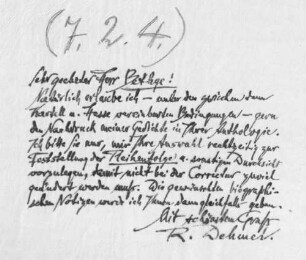 (7. 2. 4.)
Sehr geehrter Herr Bethge!
Natürlich erlaube ich – unter den zwischen dem
Kartell u. Hesse vereinbarten Bedingungen – gern
den Nachdruck meiner Gedichte in Ihrer Anthologie.
Ich bitte Sie nur, mir Ihre Auswahl rechtzeitig zur
Feststellung der Reihenfolge u. sonstigen Durchsicht
vorzulegen, damit nicht bei der Correctur zuviel
geändert werden muß. Die gewünschten biographi-
schen Notizen werde ich Ihnen dann gleichfalls geben.
Mit schönstem Gruß
R. Dehmel.